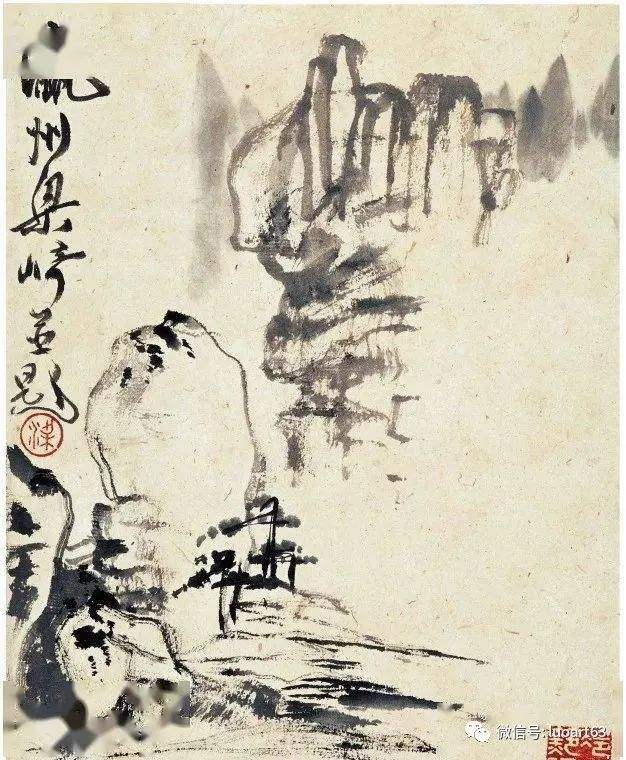 瀛州梁崎並題
梁
微信号: luoart63